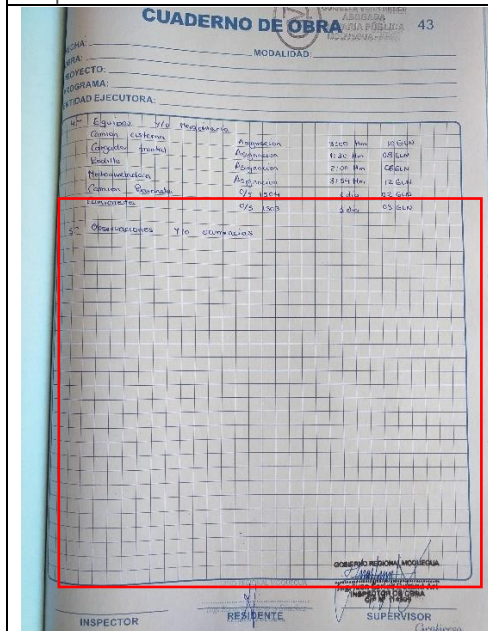 CUADERNO DE OBRA 43
ABOGADA
NOTARIA PÚBLICA
FECHA:
OBRA: MODALIDAD:
PROYECTO:
PROGRAMA:
ENTIDAD EJECUTORA:
4.- Equipos y/o Maquinaria
Camion cisterna Asignacion 3:00 Hm 10 GLN
Cargador frontal Asignacion 1:30 Hm 08 GLN
Rodillo Asignacion 2:00 Hm 08 GLN
Motoniveladora Asignacion 12 GLN
Camion Baranda O/S 1304 1 dia 02 GLN
Camioneta O/S 1303 1 dia 03 GLN
5.- Observaciones y/o ocurrencias
GOBIERNO REGIONAL MOQUEGUA
INSPECTOR DE OBRA
INSPECTOR RESIDENTE SUPERVISOR